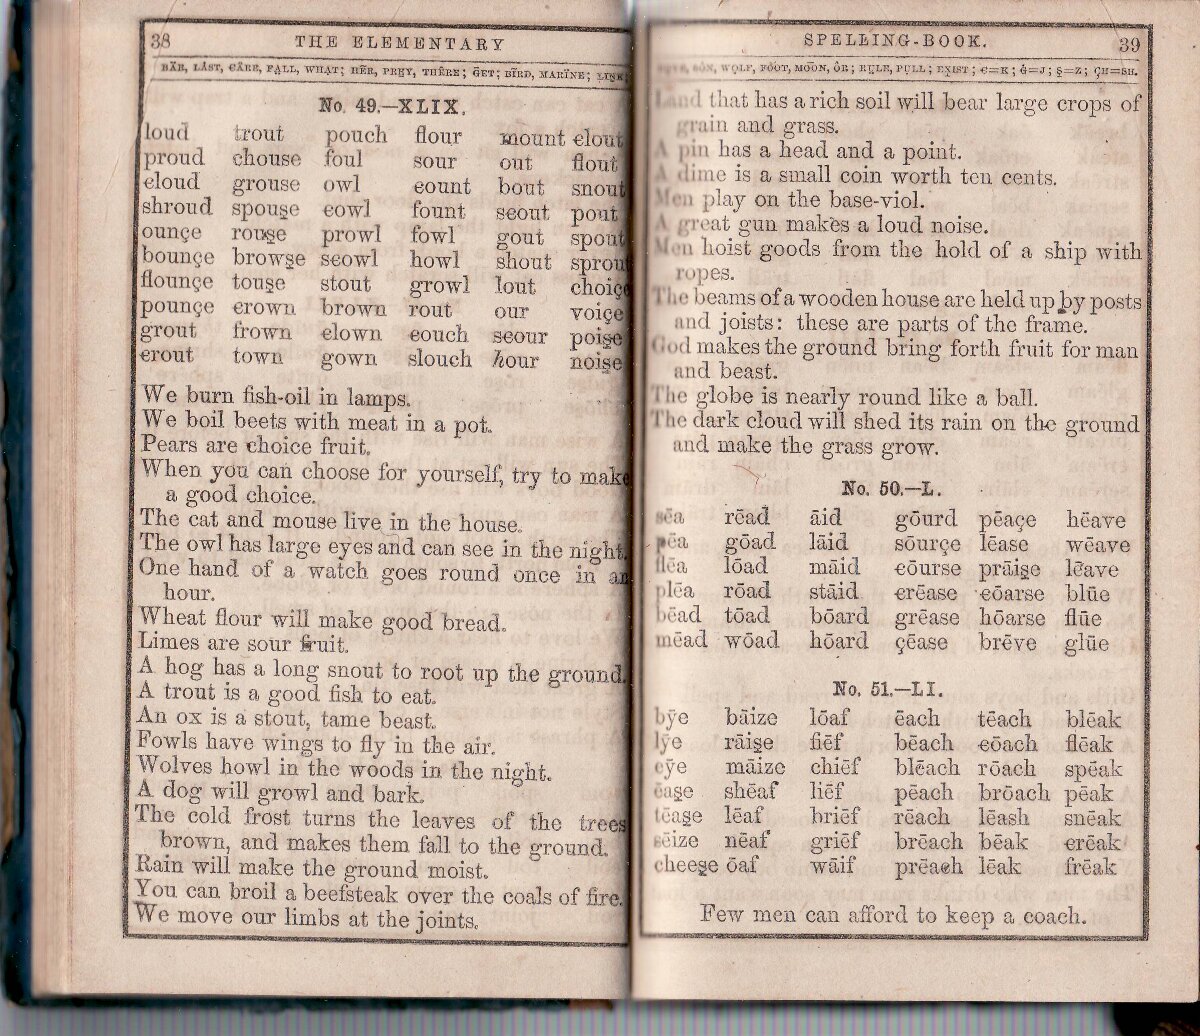 38 THE ELEMENTARY
BÄR, LÅST, ЄÂRE, FA̤LL, WHA̤T; HẼR, PRE̱Y, THÊRE; ḠET; BĨRD, MARÏNE; LIN̲K;
No. 49.—XLIX.
loud trout pouch flour mount єlout
proud єhouse foul sour out flout
єloud grouse owl єount bout snout
shroud spouşe єowl fount sєout pout
ounçe rouşe prowl fowl gout spout
bounçe browşe sєowl howl shout sprout
flounçe touşe stout growl lout choiçe
pounçe єrown brown rout our voiçe
grout frown єlown єouch sєour poişe
єrout town gown slouch hour noişe
We burn fish-oil in lamps.
We boil beets with meat in a pot.
Pears are choice fruit.
When you can choose for yourself, try to make
a good choice.
The cat and mouse live in the house.
The owl has large eyes and can see in the night.
One hand of a watch goes round once in an
hour.
Wheat flour will make good bread.
Limes are sour fruit.
A hog has a long snout to root up the ground.
A trout is a good fish to eat.
An ox is a stout, tame beast.
Fowls have wings to fly in the air.
Wolves howl in the woods in the night.
A dog will growl and bark.
The cold frost turns the leaves of the trees
brown, and makes them fall to the ground.
Rain will make the ground moist.
You can broil a beefsteak over the coals of fire.
We move our limbs at the joints.
SPELLING-BOOK. 39
WO̤LF, FO͝OT, MO͞ON, ÔR; RṲLE, PṲLL; EX̱IST; Є=K; Ġ=J; Ş=Z; ÇH=SH.
Land that has a rich soil will bear large crops of
grain and grass.
A pin has a head and a point.
A dime is a small coin worth ten cents.
Men play on the base-viol.
A great gun makes a loud noise.
Men hoist goods from the hold of a ship with
ropes.
The beams of a wooden house are held up by posts
and joists: these are parts of the frame.
God makes the ground bring forth fruit for man
and beast.
The globe is nearly round like a ball.
The dark cloud will shed its rain on the ground
and make the grass grow.
No. 50.—L.
sēa rēad āid gōurd pēaçe hēave
pēa gōad lāid sōurçe lēase wēave
flēa lōad māid єōurse prāişe lēave
plēa rōad stāid єrēase єōarse blūe
bēad tōad bōard grēase hōarse flūe
mēad wōad hōard çēase brēve glūe
No. 51.—LI.
bȳe bāize lōaf ēach tēach blēak
lȳe rāişe fiēf bēach єōach flēak
eȳe māize chiēf blēach rōach spēak
ēaşe shēaf liēf pēach brōach pēak
tēaşe lēaf briēf rēach lēash snēak
sēize nēaf griēf brēach bēak єrēak
cheeşe ōaf wāif prēach lēak frēak
Few men can afford to keep a coach.